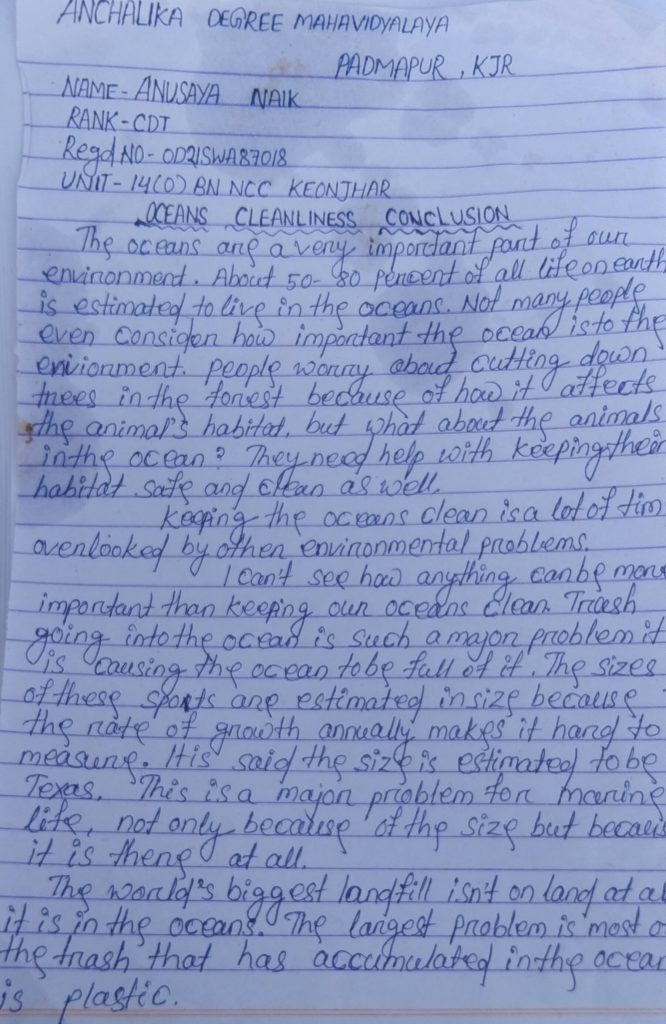 ANCHALIKA DEGREE MAHAVIDYALAYA
PADMAPUR, KJR
NAME - ANUSAYA NAIK
RANK - CDT
Regd NO - OD21SWA87018
UNIT - 14(O) BN NCC KEONJHAR
OCEANS CLEANLINESS CONCLUSION
The oceans are a very important part of our
environment. About 50-80 percent of all life on earth
is estimated to live in the oceans. Not many people
even consider how important the ocean is to the
enviornment. people worry about cutting down
trees in the forest because of how it affects
the animal's habitat, but what about the animals
in the ocean? They need help with keeping their
habitat safe and clean as well.
keeping the oceans clean is a lot of tim
overlooked by other environmental problems.
I can't see how anything can be more
important than keeping our oceans clean. Trash
going into the ocean is such a major problem it
is causing the ocean to be full of it. The sizes
of these sports are estimated in size because
the rate of growth annually makes it hard to
measure. It is said the size is estimated to be
Texas. This is a major problem for marine
life, not only because of the size but becaus
it is there at all.
The world's biggest landfill isn't on land at al
it is in the oceans. The largest problem is most o
the trash that has accumulated in the ocean
is plastic.